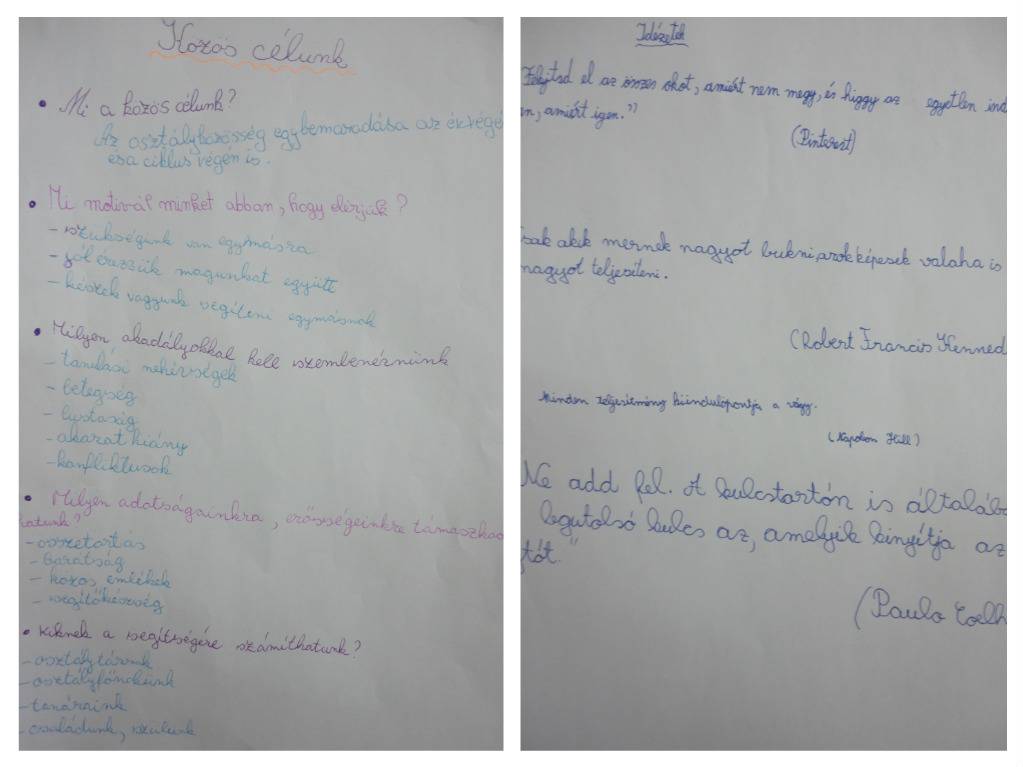 Közös célunk
• Mi a közös célunk?
Az osztályközösség egybemaradása az év végén
és a ciklus végén is.
• Mi motivál minket abban, hogy elérjük?
- szükségünk van egymásra
- jól érezzük magunkat együtt
- készek vagyunk segíteni egymásnak
• Milyen akadályokkal kell szembenéznünk
- tanulási nehézségek
- betegség
- lustaság
- akarat hiány
- konfliktusok
• Milyen adottságainkra, erősségeinkre támaszkod
hatunk?
- összetartás
- barátság
- közös emlékek
- segítőkészség
• Kiknek a segítségére számíthatunk?
- osztálytársunk
- osztályfőnökünk
- tanáraink
- családunk, szüleink
Idézetek
Felejtsd el az összes okot, amiért nem megy, és higgy az egyetlen ind
n, amiért igen."
(Pinterest)
sak akik mernek nagyot bukni, azok képesek valaha is
nagyot teljesíteni.
(Robert Francis Kenned
Minden teljesítmény kiindulópontja a vágy.
(Napoleon Hill)
Ne add fel. A kulcstartón is általáb
legutolsó kulcs az, amelyik kinyitja az
tót."
(Paulo Coelh